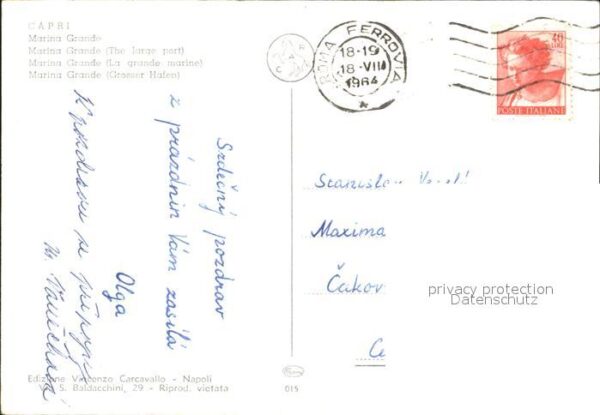 CAPRI
Marina Grande
Marina Grande (The large port)
Marina Grande (La grande marine)
Marina Grande (Grosser Hafen)
ROMA FERROVIA
18-19
18-VIII
1964
40
LIRE
POSTE ITALIANE
Srdečný pozdrav
z prázdnin Vám zasílá
Olga
K pozdravu se připojuje
M.
Stanislav
Maxima
Čakov
privacy protection
Datenschutz
Edizione Vincenzo Carcavallo - Napoli
Via S. Baldacchini, 29 - Riprod. vietata
015